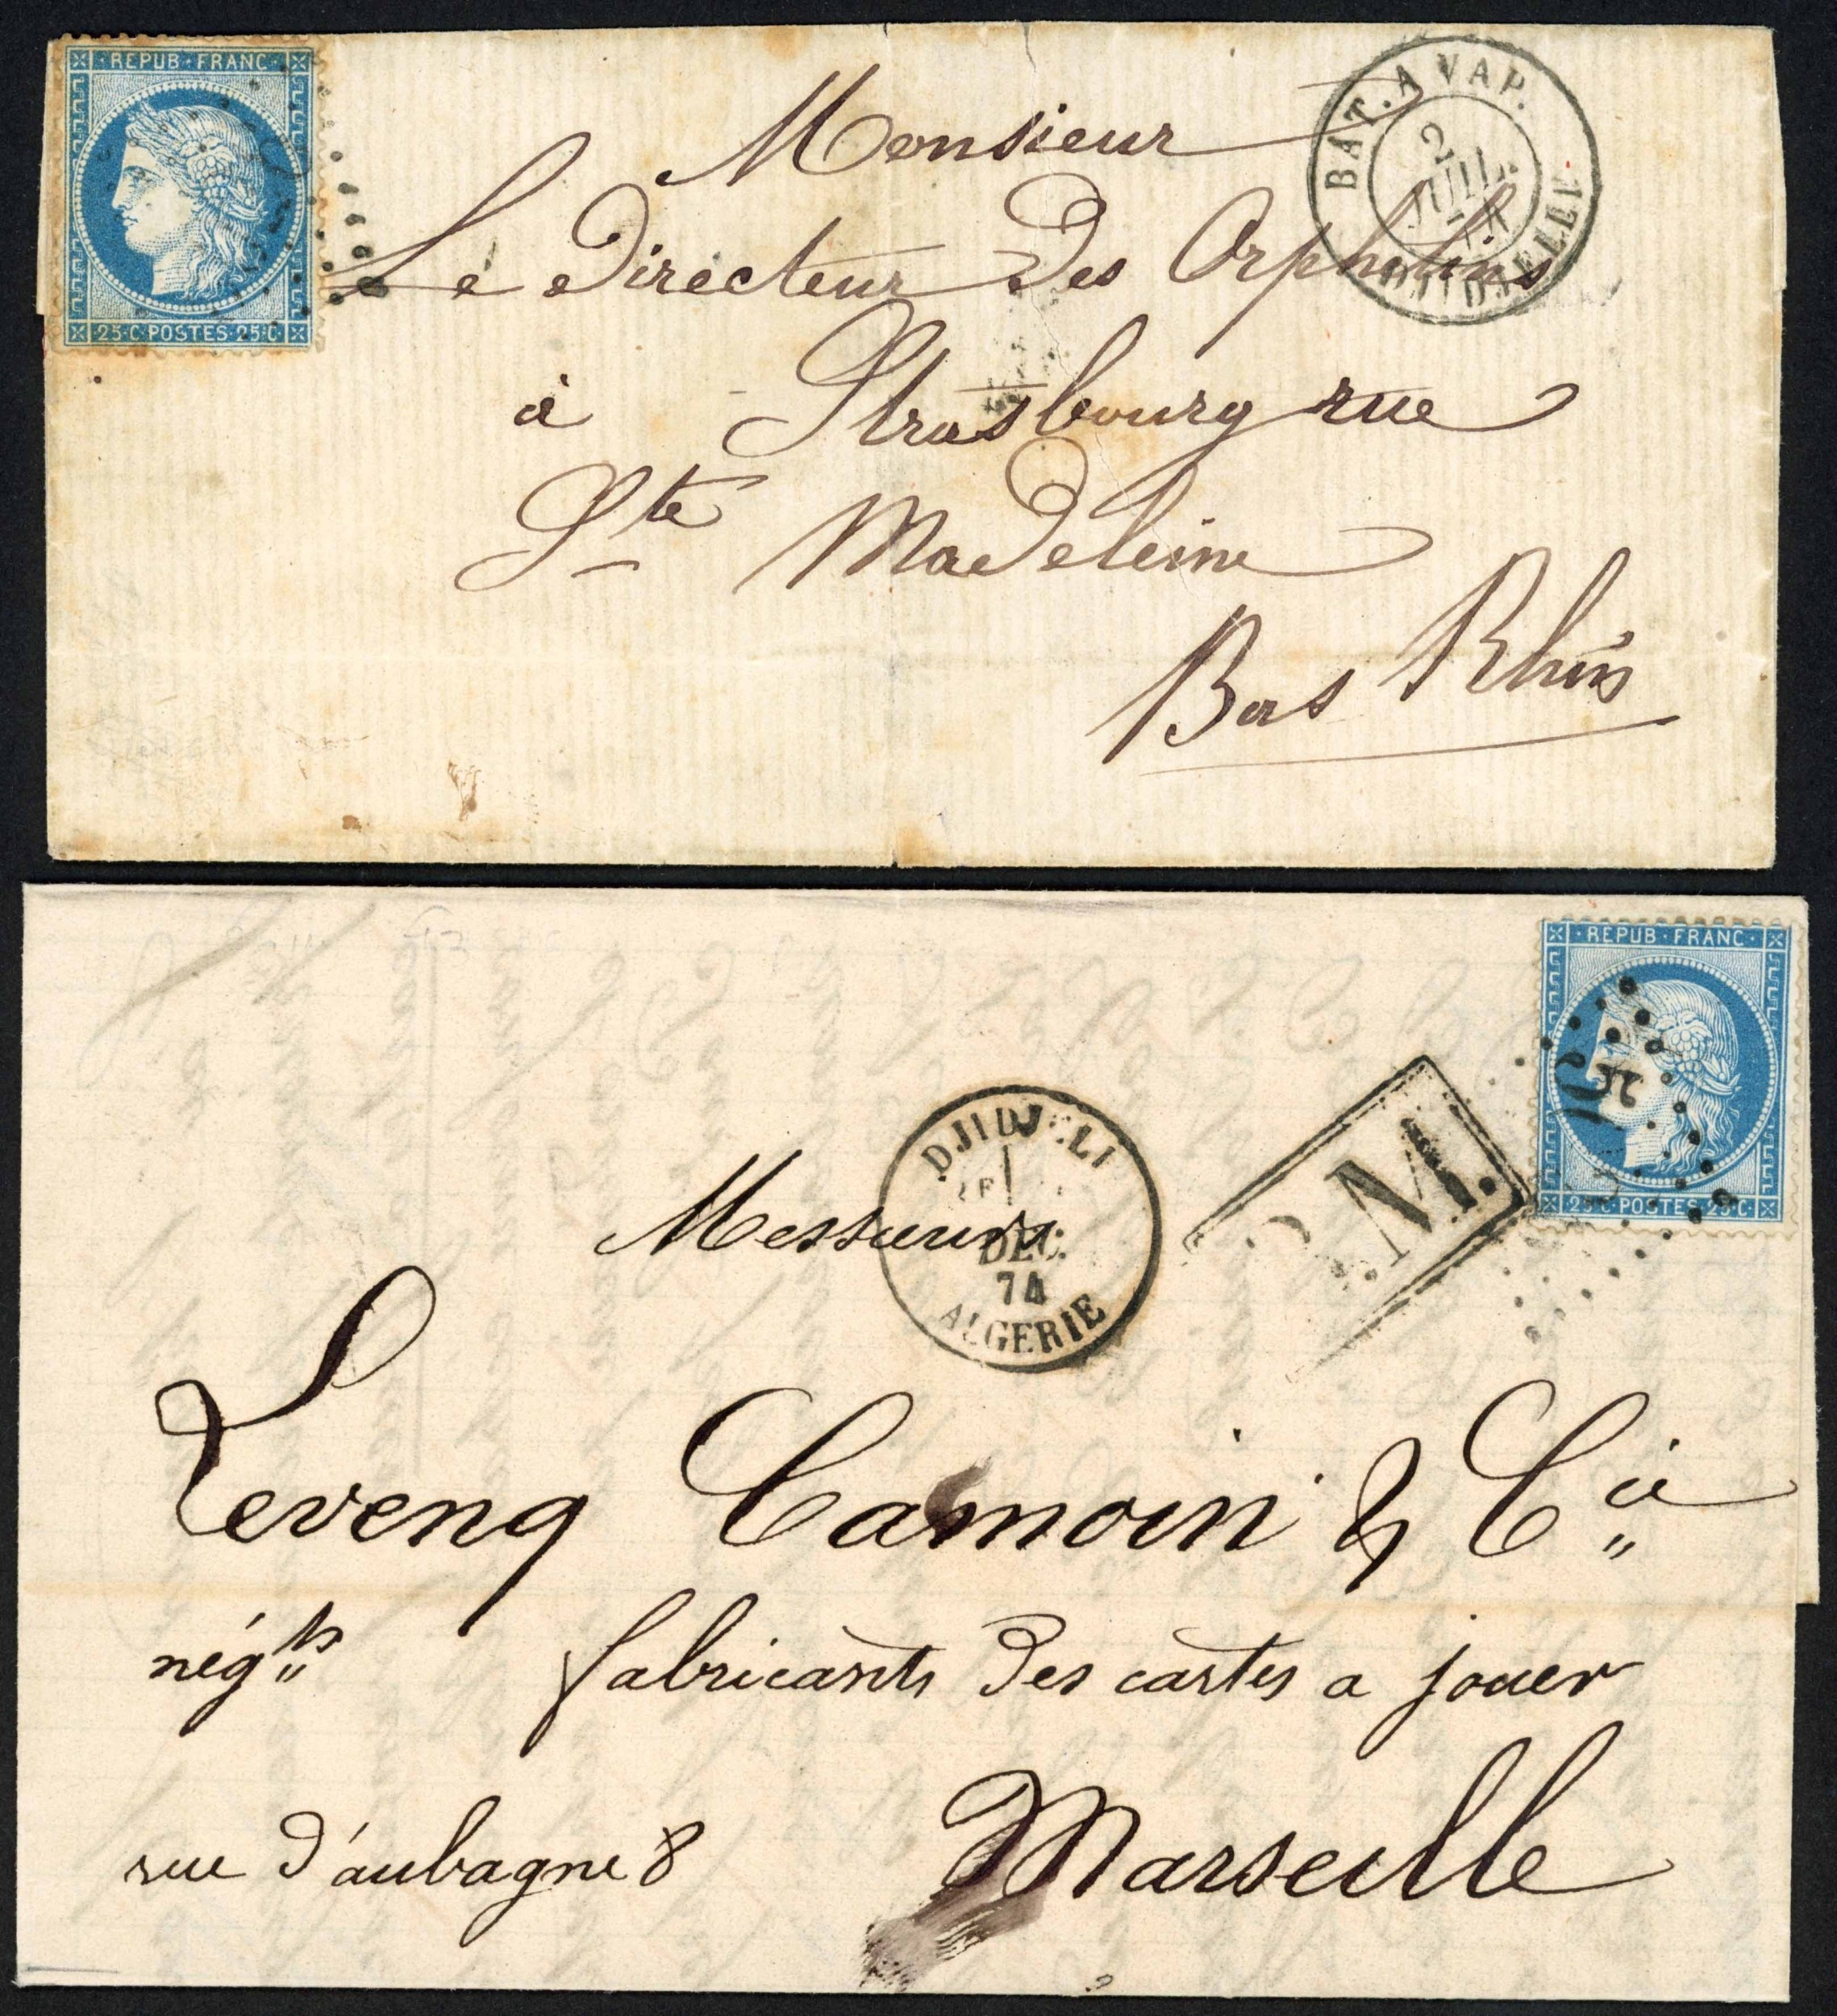 REPUB·FRANC
25·C·POSTES·25·C
BAT. A VAP.
2
JUIL.
DJIDJELLI
Monsieur
Le Directeur Des Orphelins
à Strasbourg rue
Ste Madeleine
Bas Rhin
REPUB·FRANC
25·C·POSTES·25·C
DJIDJELI
DEC.
74
ALGERIE
P.M.
Messieurs
Levenq Camoin & Cie
négts fabricants Des cartes a jouer
rue D'aubagne 8 Marseille